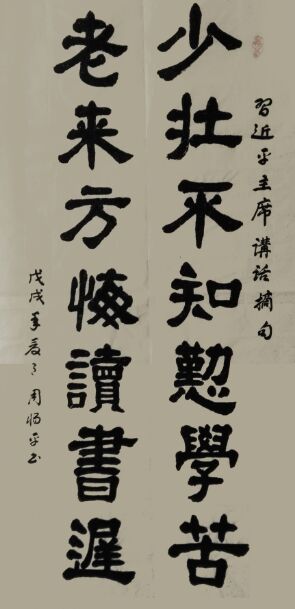 習近平主席講話摘句
少壮不知懃學苦
老来方悔讀書遲
戊戌年夏周平书